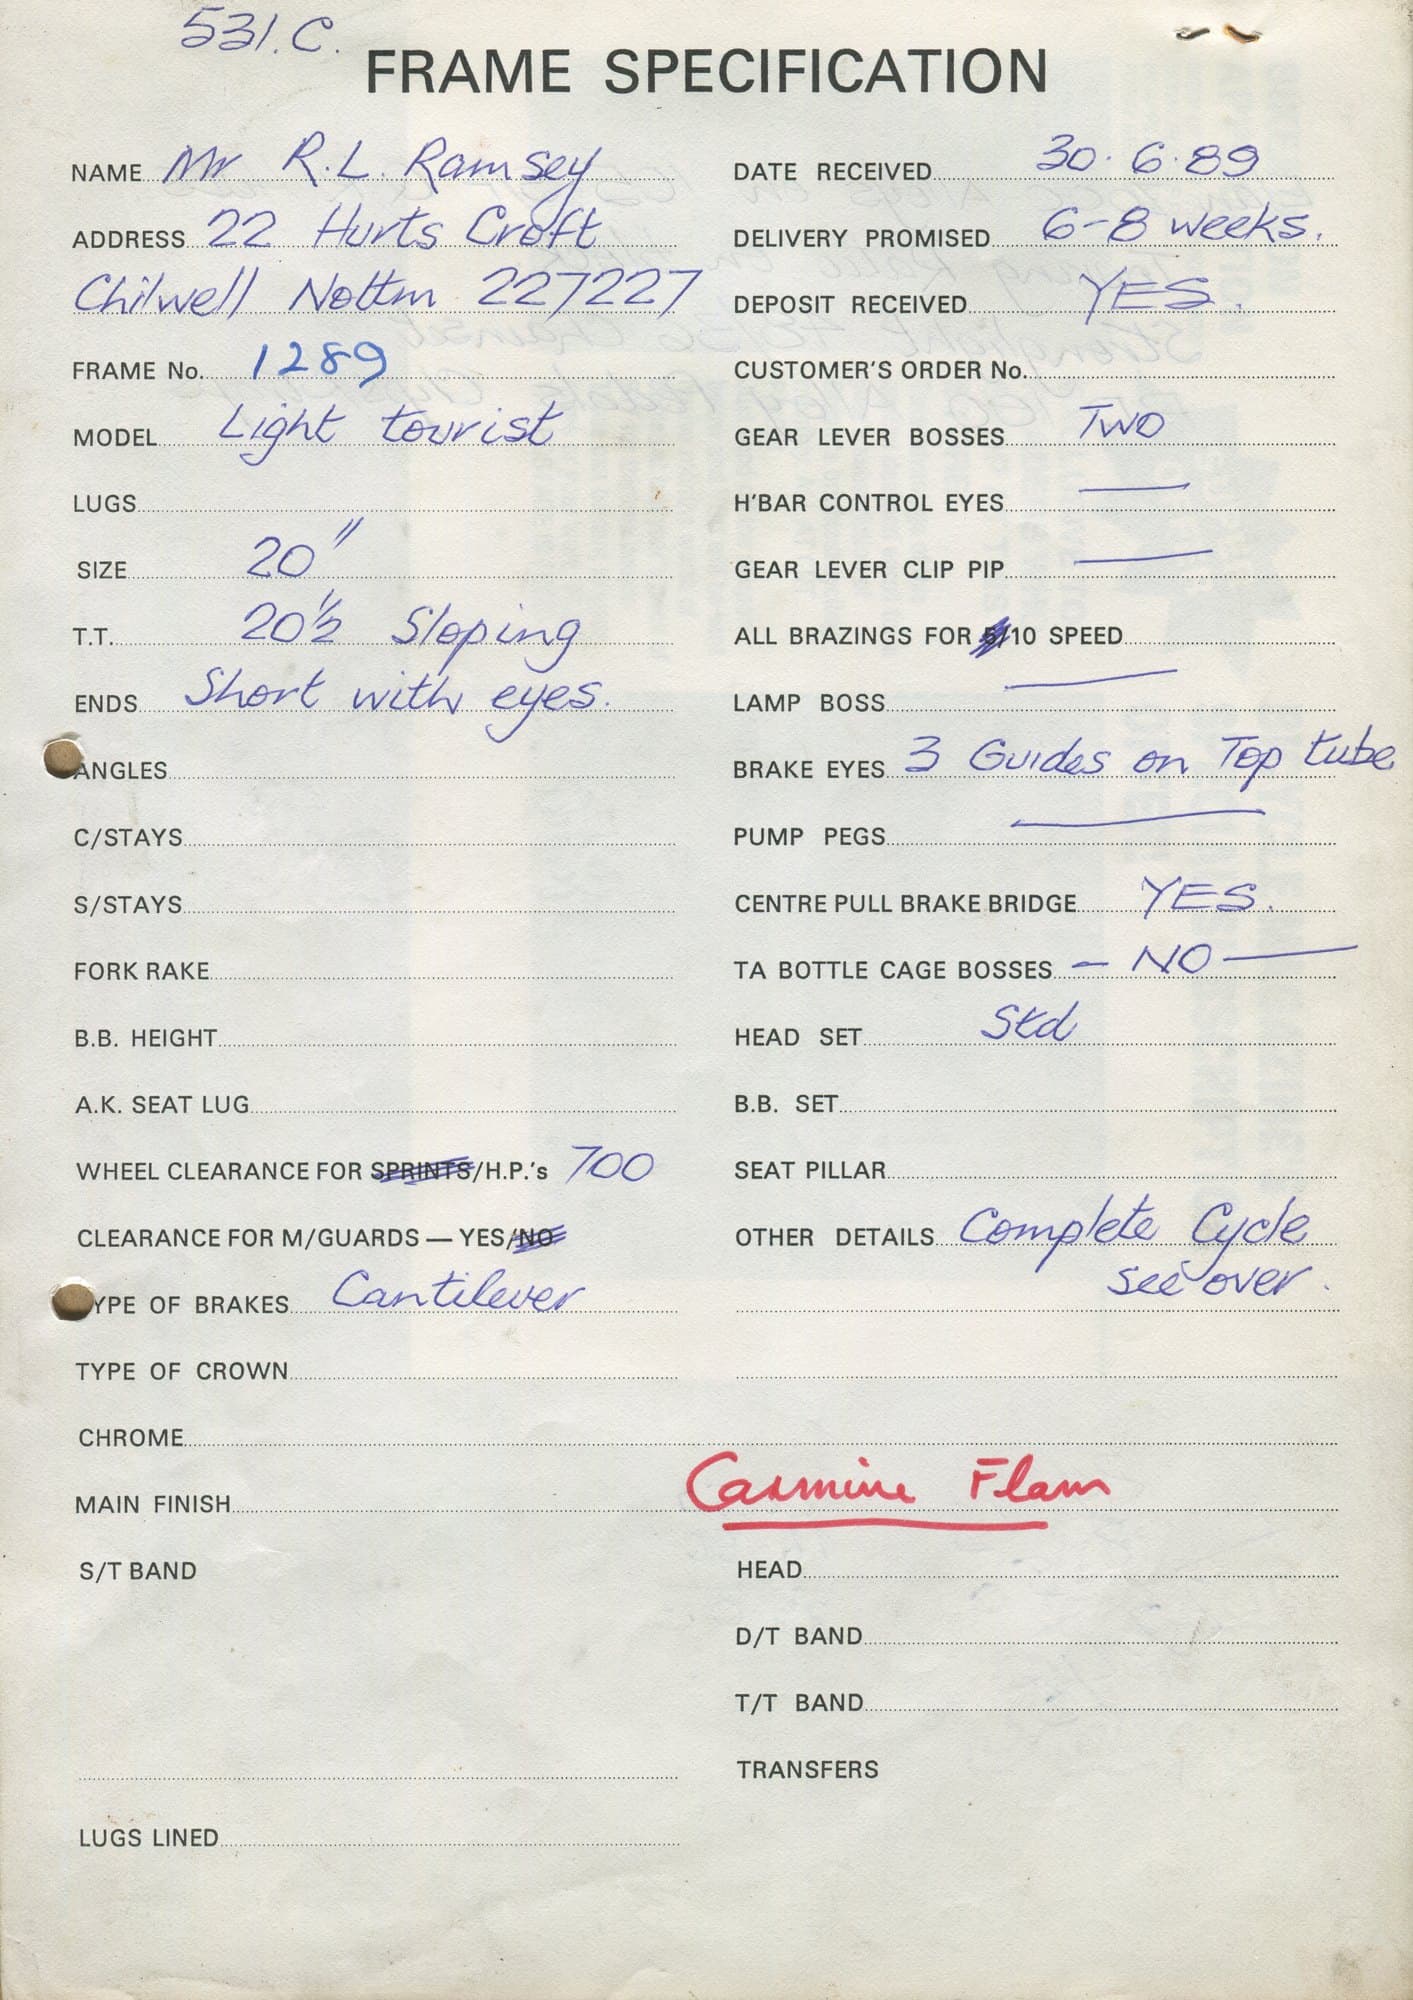 531.C.
FRAME SPECIFICATION
NAME Mr R.L. Ramsey
ADDRESS 22 Hurts Croft
Chilwell Nottm 227227
FRAME No. 1289
MODEL Light tourist
LUGS
SIZE 20"
T.T. 20½" Sloping
ENDS Short with eyes.
ANGLES
C/STAYS
S/STAYS
FORK RAKE
B.B. HEIGHT
A.K. SEAT LUG
WHEEL CLEARANCE FOR SPRINTS/H.P.'s 700
CLEARANCE FOR M/GUARDS — YES/NO
TYPE OF BRAKES Cantilever
TYPE OF CROWN
DATE RECEIVED 30.6.89
DELIVERY PROMISED 6-8 weeks.
DEPOSIT RECEIVED YES.
CUSTOMER'S ORDER No.
GEAR LEVER BOSSES TWO
H'BAR CONTROL EYES —
GEAR LEVER CLIP PIP —
ALL BRAZINGS FOR 5/10 SPEED
LAMP BOSS —
BRAKE EYES 3 Guides on Top tube
PUMP PEGS —
CENTRE PULL BRAKE BRIDGE YES.
TA BOTTLE CAGE BOSSES – NO —
HEAD SET Std
B.B. SET
SEAT PILLAR
OTHER DETAILS Complete Cycle
see over.
CHROME
MAIN FINISH Carmine Flam
S/T BAND
LUGS LINED
HEAD
D/T BAND
T/T BAND
TRANSFERS